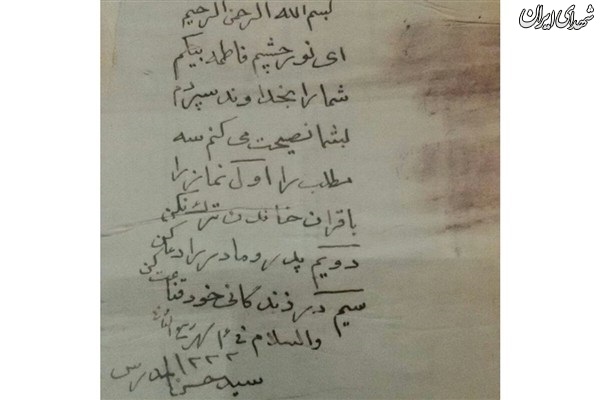 شهدای ایران
بسم الله الرحمن الرحیم
ای نور چشم فاطمه بیگم
شما را بخداوند سپردم
بشما نصیحت می کنم سه
مطلب را اول نماز را
با قران خواندن ترک نکن
دویم پدر و مادر را دعا کن
سیم در زندگانی خود قناعت کن
والسلام فی
سید حسن المدرس